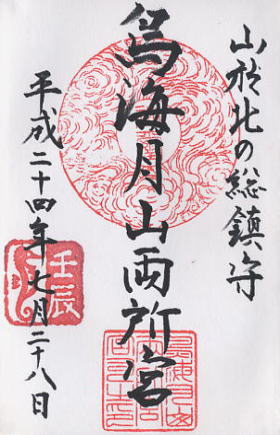 山形北の総鎮守
鳥海月山両所宮
平成二十四年七月二十八日
壬辰